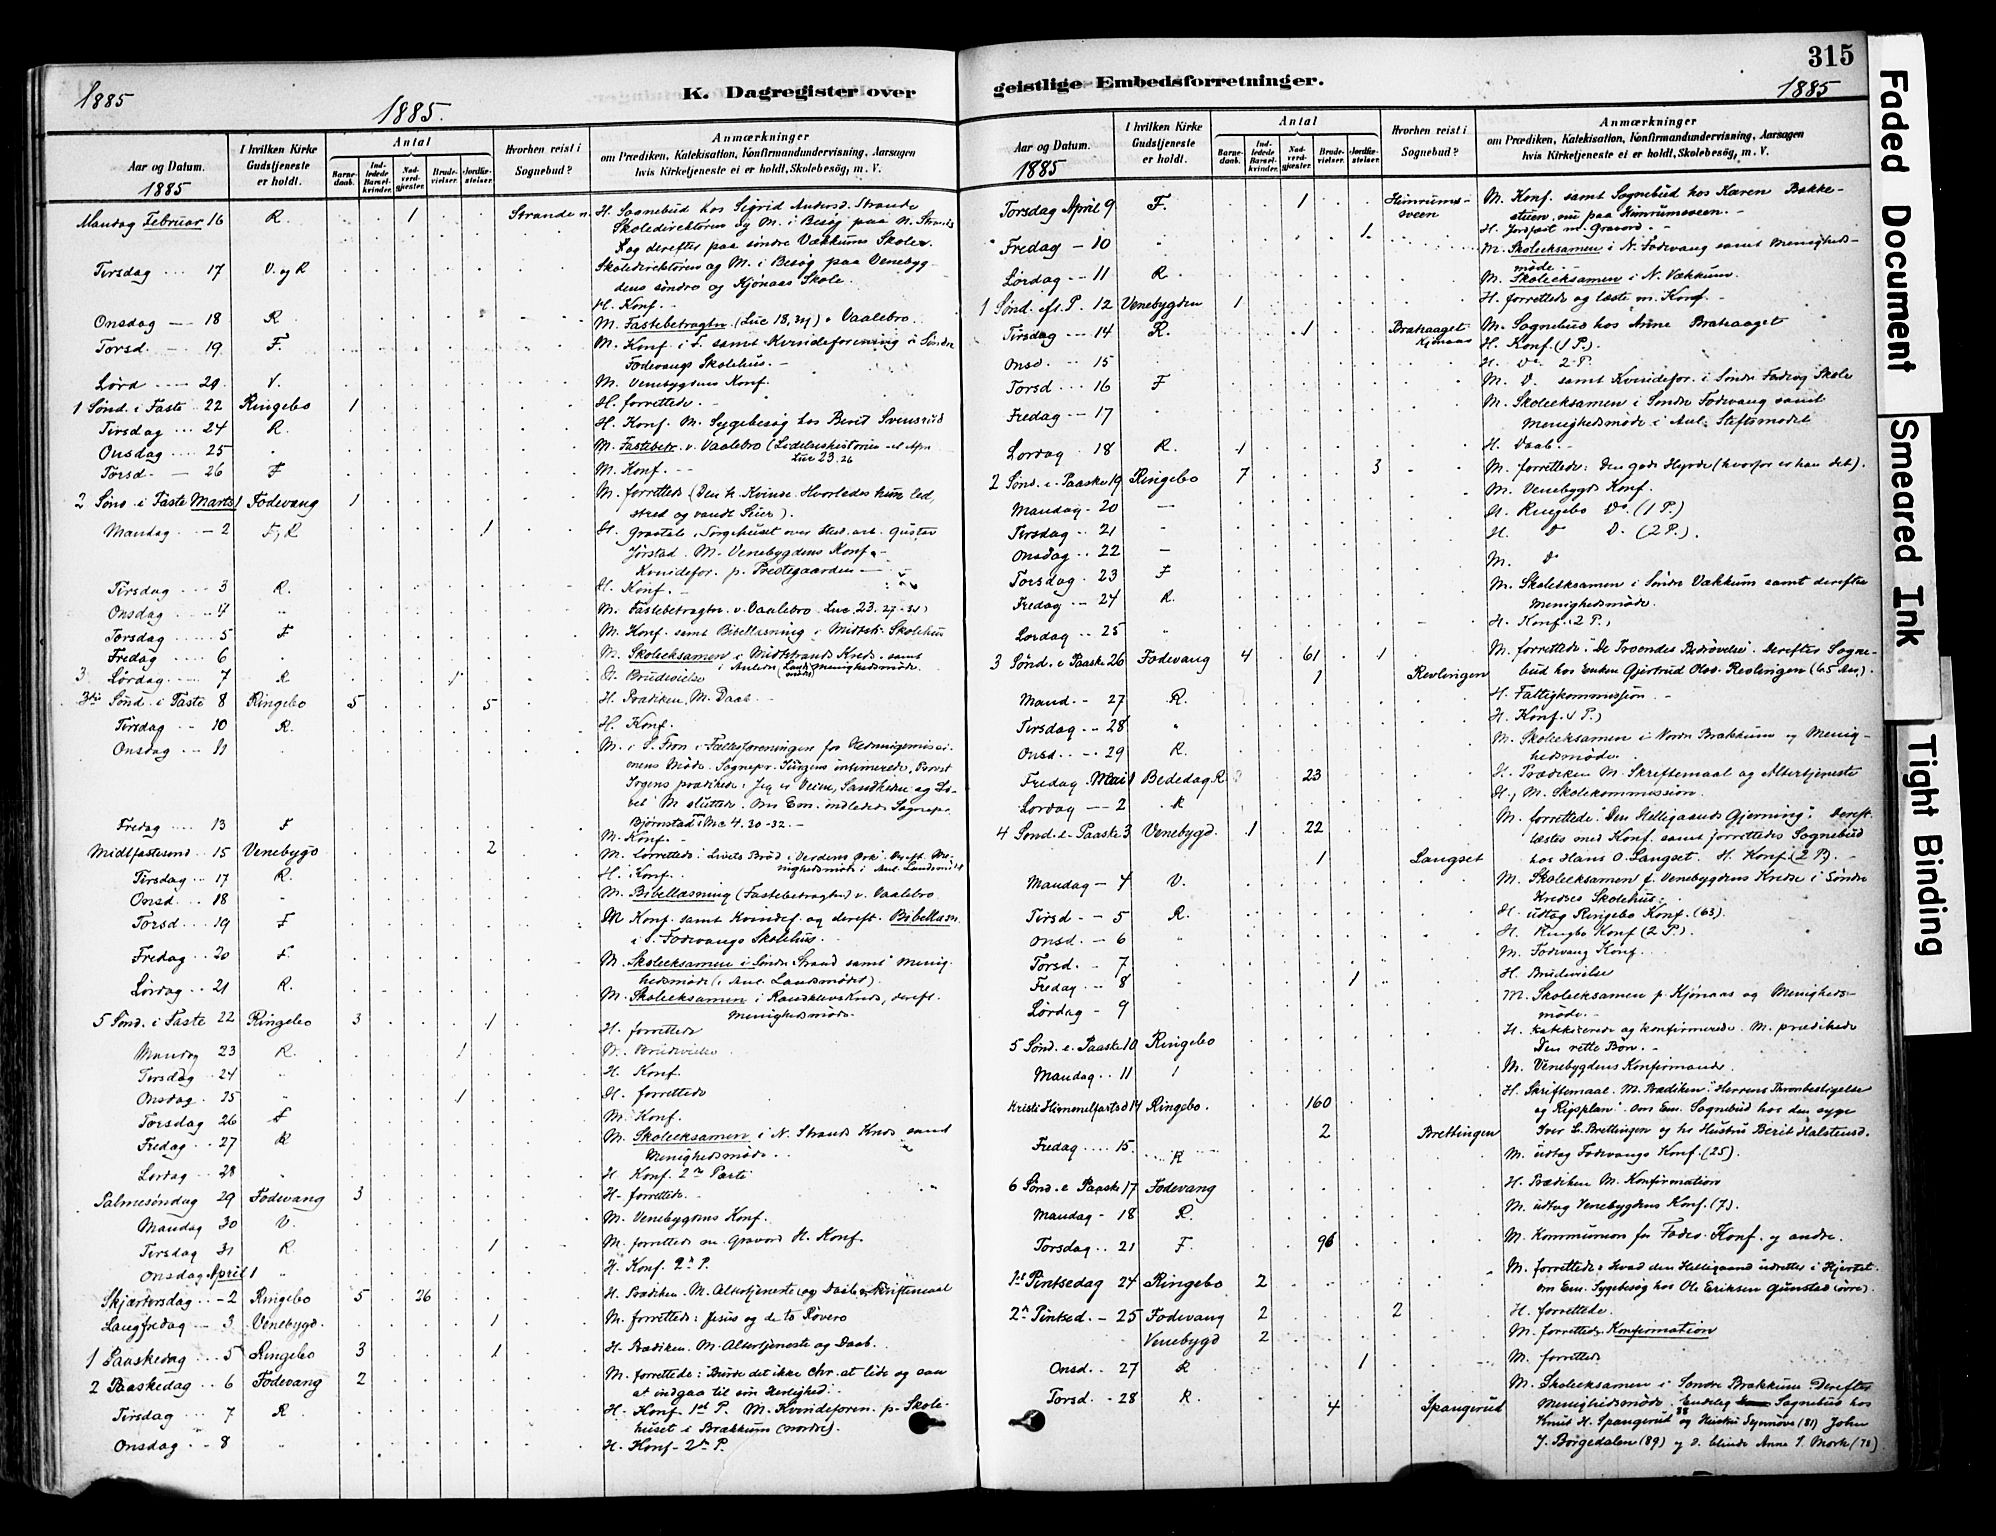 315
1885
1885.
K. Dagregister over
geistlige Embedsforretninger.
1885
Aar og Datum.
1885
I hvilken Kirke Gudstjeneste er holdt.
Antal
Barnedaab.
Indledede Barselkvinder.
Nadverdgjester.
Brudevielser.
Jordfæstelser.
Hvorhen reist i Sognebud?
Anmærkninger
om Prædiken, Katekisation, Konfirmandundervisning, Aarsagen
hvis Kirketjeneste ei er holdt, Skolebesøg, m. V.
Mandag Februar 16 R. 1 Stranden H. Sognebud hos Sigrid Andersd. Strande
Skoledirektøren og M. i Besøg paa N. Strands
og derefter paa søndre Vækkums Skoler.
Tirsdag 17 V. og R Skoledirektøren og M. i Besøg paa Venebyg-
dens søndre og Kjønaas Skole.
H. Konf.
Onsdag 18 R M. Fastebetragtn (Luc 18,34) v Vaalebro.
Torsd. 19. F. M. Konf. i F. samt Kvindeforening i Søndre
Fodevangs Skolehus.
Lørd 20. V. M. Venebygdens Konf.
1 Sønd. i Faste 22 Ringebo 1 H. forrettede.
Tirsdag 24 R. H. Konf. M. Sygebesøg hos Berit Svensrud
Onsdag 25 M. Fastebetr. v. Vaalebro (Lidelseshistorien
Luc 23.26
Torsd. 26 F M. Konf.
2 Sønd. i Faste Marts 1 Fodevang 1 M. forrettede (Den k. Kvinde. Hvorledes hun led,
stred og vandt Seier).
Mandag 2 F, R 1 H. Gravtale i Sørgehuset over Gustav
Jørstad. M. Venebygdens Konf.
Kvindefor. p. Prestegaarden
Tirsdag 3 R. H. Konf.
Onsdag 4 " M. Fastebetragtn. v. Vaalebro Luc 23. 27-31)
Torsdag 5 F M. Konf. samt Bibellæsning i Midtst. Skolehus
Fredag 6 M. Skoleeksamen i Midtstrands Kreds samt
i Anledn. Menighedsmøde
Lørdag 7 R 1 Brudevielse
3die Sønd. i Faste 8 Ringebo 5 5 H. Prædiken, M. Daab.
Tirsdag 10 R. H. Konf.
Onsdag 11 M. i S. Fron i Fællesforeningen for Hedningemissi-
onens Møde. Sognepr. intimerede, Provst
prædikede: Jeg er Veien, Sandheden og Li-
vet M sluttede. Om Em. indledede Sognepr.
Bjørnstad Mc 4. 30-32.
Fredag 13 F M. Konf.
Midtfastesønd. 15 Venebygd 2 M. forrettede: Livets Brød i Verdens Ørk. Dereft. Me-
nighedsmøde i Anl. Landsmødet
Tirsdag 17 R. H. Konf.
Onsd. 18 M. Bibellæsning (Fastebetragtn) v. Vaalebro
Torsd. 19 F M Konf. samt Kvindef. og dereft. Bibellæsn.
i S. Fodevangs Skolehus.
Fredag 20 F. M. Skoleeksamen i Søndre Strand samt Menig-
hedsmøde (i Anl. Landsmødet)
Lørdag 21 R. M. Skoleeksamen i Randklevs Kreds, dereft.
Menighedsmøde
5 Sønd. i Faste 22 Ringebo 3 1 H. forrettede
Mandag 23 R. 1 Brudevielse
Tirsdag 24 " H. Konf.
Onsdag 25 1 H. forrettede
Torsdag 26 F M. Konf.
Fredag 27 R M. Skoleeksamen i N. Strands Kreds samt
Menighedsmøde.
Lørdag 28 " H Konf. 2de Parti
Palmesøndag 29 Fodevang 3 H. forrettede.
Mandag 30 V. M. Venebygdens Konf.
Tirsdag 31 R 1 M. forrettede m. Gravord H. Konf.
Onsdag April 1 " H. Konf. 2de P.
Skjærtorsdag 2 Ringebo 5 26 H. Prædiken. M. Altertjeneste og Daab Skriftemaal
Langfredag 3 Venebygd. 1 M. forrettede: Jesus og de to Røvere
1 Paaskedag 5 Ringebo 3 1 H. Prædiken. M. Altertjeneste og Daab.
2 Paaskedag 6 Fodevang 2 M. forrettede: Burde det ikke Chr. at lide og saa
at indgaa til sin Herlighed.
Tirsdag 7 R H. Konf. 1ste P. M. Kvindeforen. p. Skole-
huset i Brækkum (nordre).
Onsdag 8 " H. Konf. 2de P.
Aar og Datum.
1885
I hvilken Kirke Gudstjeneste er holdt.
Antal
Barnedaab.
Indledede Barselkvinder.
Nadverdgjester.
Brudevielser.
Jordfæstelser.
Hvorhen reist i Sognebud?
Anmærkninger
om Prædiken, Katekisation, Konfirmandundervisning, Aarsagen
hvis Kirketjeneste ei er holdt, Skolebesøg, m. V.
Torsdag April 9 F. 1 Himrumsveen M. Konf. samt Sognebud hos Karen Bakke-
stuen, nu paa Himrumsveen.
Fredag 10 1 H. Jordfæst m. Gravord.
M. Skoleeksamen i N. Fodevang samt Menigheds-
møde.
Lørdag 11 R. M. Skoleeksamen i N. Vækkum.
1 Sønd. eft. P. 12 Venebygden 1 H. forrettede og læste m. Konf.
Tirsdag 14 R. 1 Brathaaget Kjønaas M. Sognebud hos Anne Brathaaget
H. Konf. (1 P.)
Onsd. 15 H. Do 2 P.
Torsd 16 F M. D. samt Kvindefor. i Søndre Fodevg Skole
Fredag 17 M. Skoleeksamen i Søndre Fodevang samt
Menighedsmøde i Anl. Stiftsmødet
Lørdag 18 R. 1 H. Daab.
2 Sønd. e. Paaske 19 Ringebo 7 3 M. forrettede: Den gode Hyrde (hvorfor er han det).
Mandag 20 M. Venebygds Konf.
Tirsdag 21 H. Ringebo Do. (1 P.)
Onsdag 22 H. D D. (2 P.).
Torsdag 23 F M. Do
Fredag 24 R. M. Skoleeksamen i Søndre Vækkum samt derefter
Menighedsmøde.
Lørdag 25 " H. Konf. (2 P.)
3 Sønd. e Paaske 26 Fodevang 4 61 1 M. forrettede: De Troendes Bedrøvelse. Derefter Sogne-
1 Revlingen bud hos Enken Gjertrud Olsd. Revlingen (65 Aar).
Mand. 27 R. H. Fattigkommission.
Tirsdag 28 " H. Konf. (1 P.)
Onsd. 29 R. M. Skoleeksamen i Nordre Brækkum og Menig-
hedsmøde.
Fredag Mai 1 Bededag R 23 H. Prædiken M. Skriftemaal og Altertjeneste
Lørdag 2 R H., M. Skolekommission.
4 Sønd. e. Paaske 3 Venebygd. 1 22 M. forrettede: Den Helligaands Gjerning. Dereft.
læstes med Konf. samt forrettedes Sognebud
1 Langset hos Hans O. Langset. H. Konf. (2 P.).
Mandag 4 V. M. Skoleeksamen f. Venebygdens Kredse i Søndre
Kredses Skolehus.
Tirsd 5 R. H. udtog Ringebo Konf. (63).
Onsd. 6 " H. Ringbo Konf (2 P.).
Torsd. 7 M. Fodevang Konf.
Fredag 8 1 H. Brudevielse
Lørdag 9 M. Skoleeksamen p. Kjønaas og Menigheds-
møde.
5 Sønd. e. Paaske 10 Ringebo H. katekiserede og konfirmerede. M. prædikede
Den rette Bøn.
Mandag 11 M. Venebygdens Konfirmand.
Kristi Himmelfartsd 14 Ringebo. 160 H. Skriftemaal. M. Prædiken: Herrens Thronbestigelse
og Rigsplan. Om Em. Sognebud hos den syge
2 Brettingen Iver L. Brettingen og hs Hustru Berit Halstensd.
Fredag 15. R M. udtog Fodevangs Konf. (25).
6 Sønd. e Paaske 17 Fodevang H. Prædiken M. Konfirmation
Mandag 18 R. M. udtog Venebygdens Konf. (7).
Torsdag 21 F. 96 M. Kommunion for Fodev. Konf. og andre.
1ste Pintsedag 24 Ringebo 2 M. forrettede: Hvad den Helligaand udretter i Hjertet.
om Em. Sygebesøg hos Ole Eriksen Gunstad
2den Pintsed. 25 Fodevang 2 2 H. forrettede.
Venebygd 2 M. forrettede Konfirmation
Onsd. 27 R 1 M. forrettede
Torsd. 28 R. 4 Spangerud M. Skoleeksamen i Søndre Brækkum. Derefter
Menighedsmøde. Endelig Sognebud hos
Knut H. Spangerud 88 og Hustru Synnøve (81) John
J. Borgedalen (89) og d. blinde Anne I. Mork (78)
Faded Document
Smeared Ink
Tight Binding